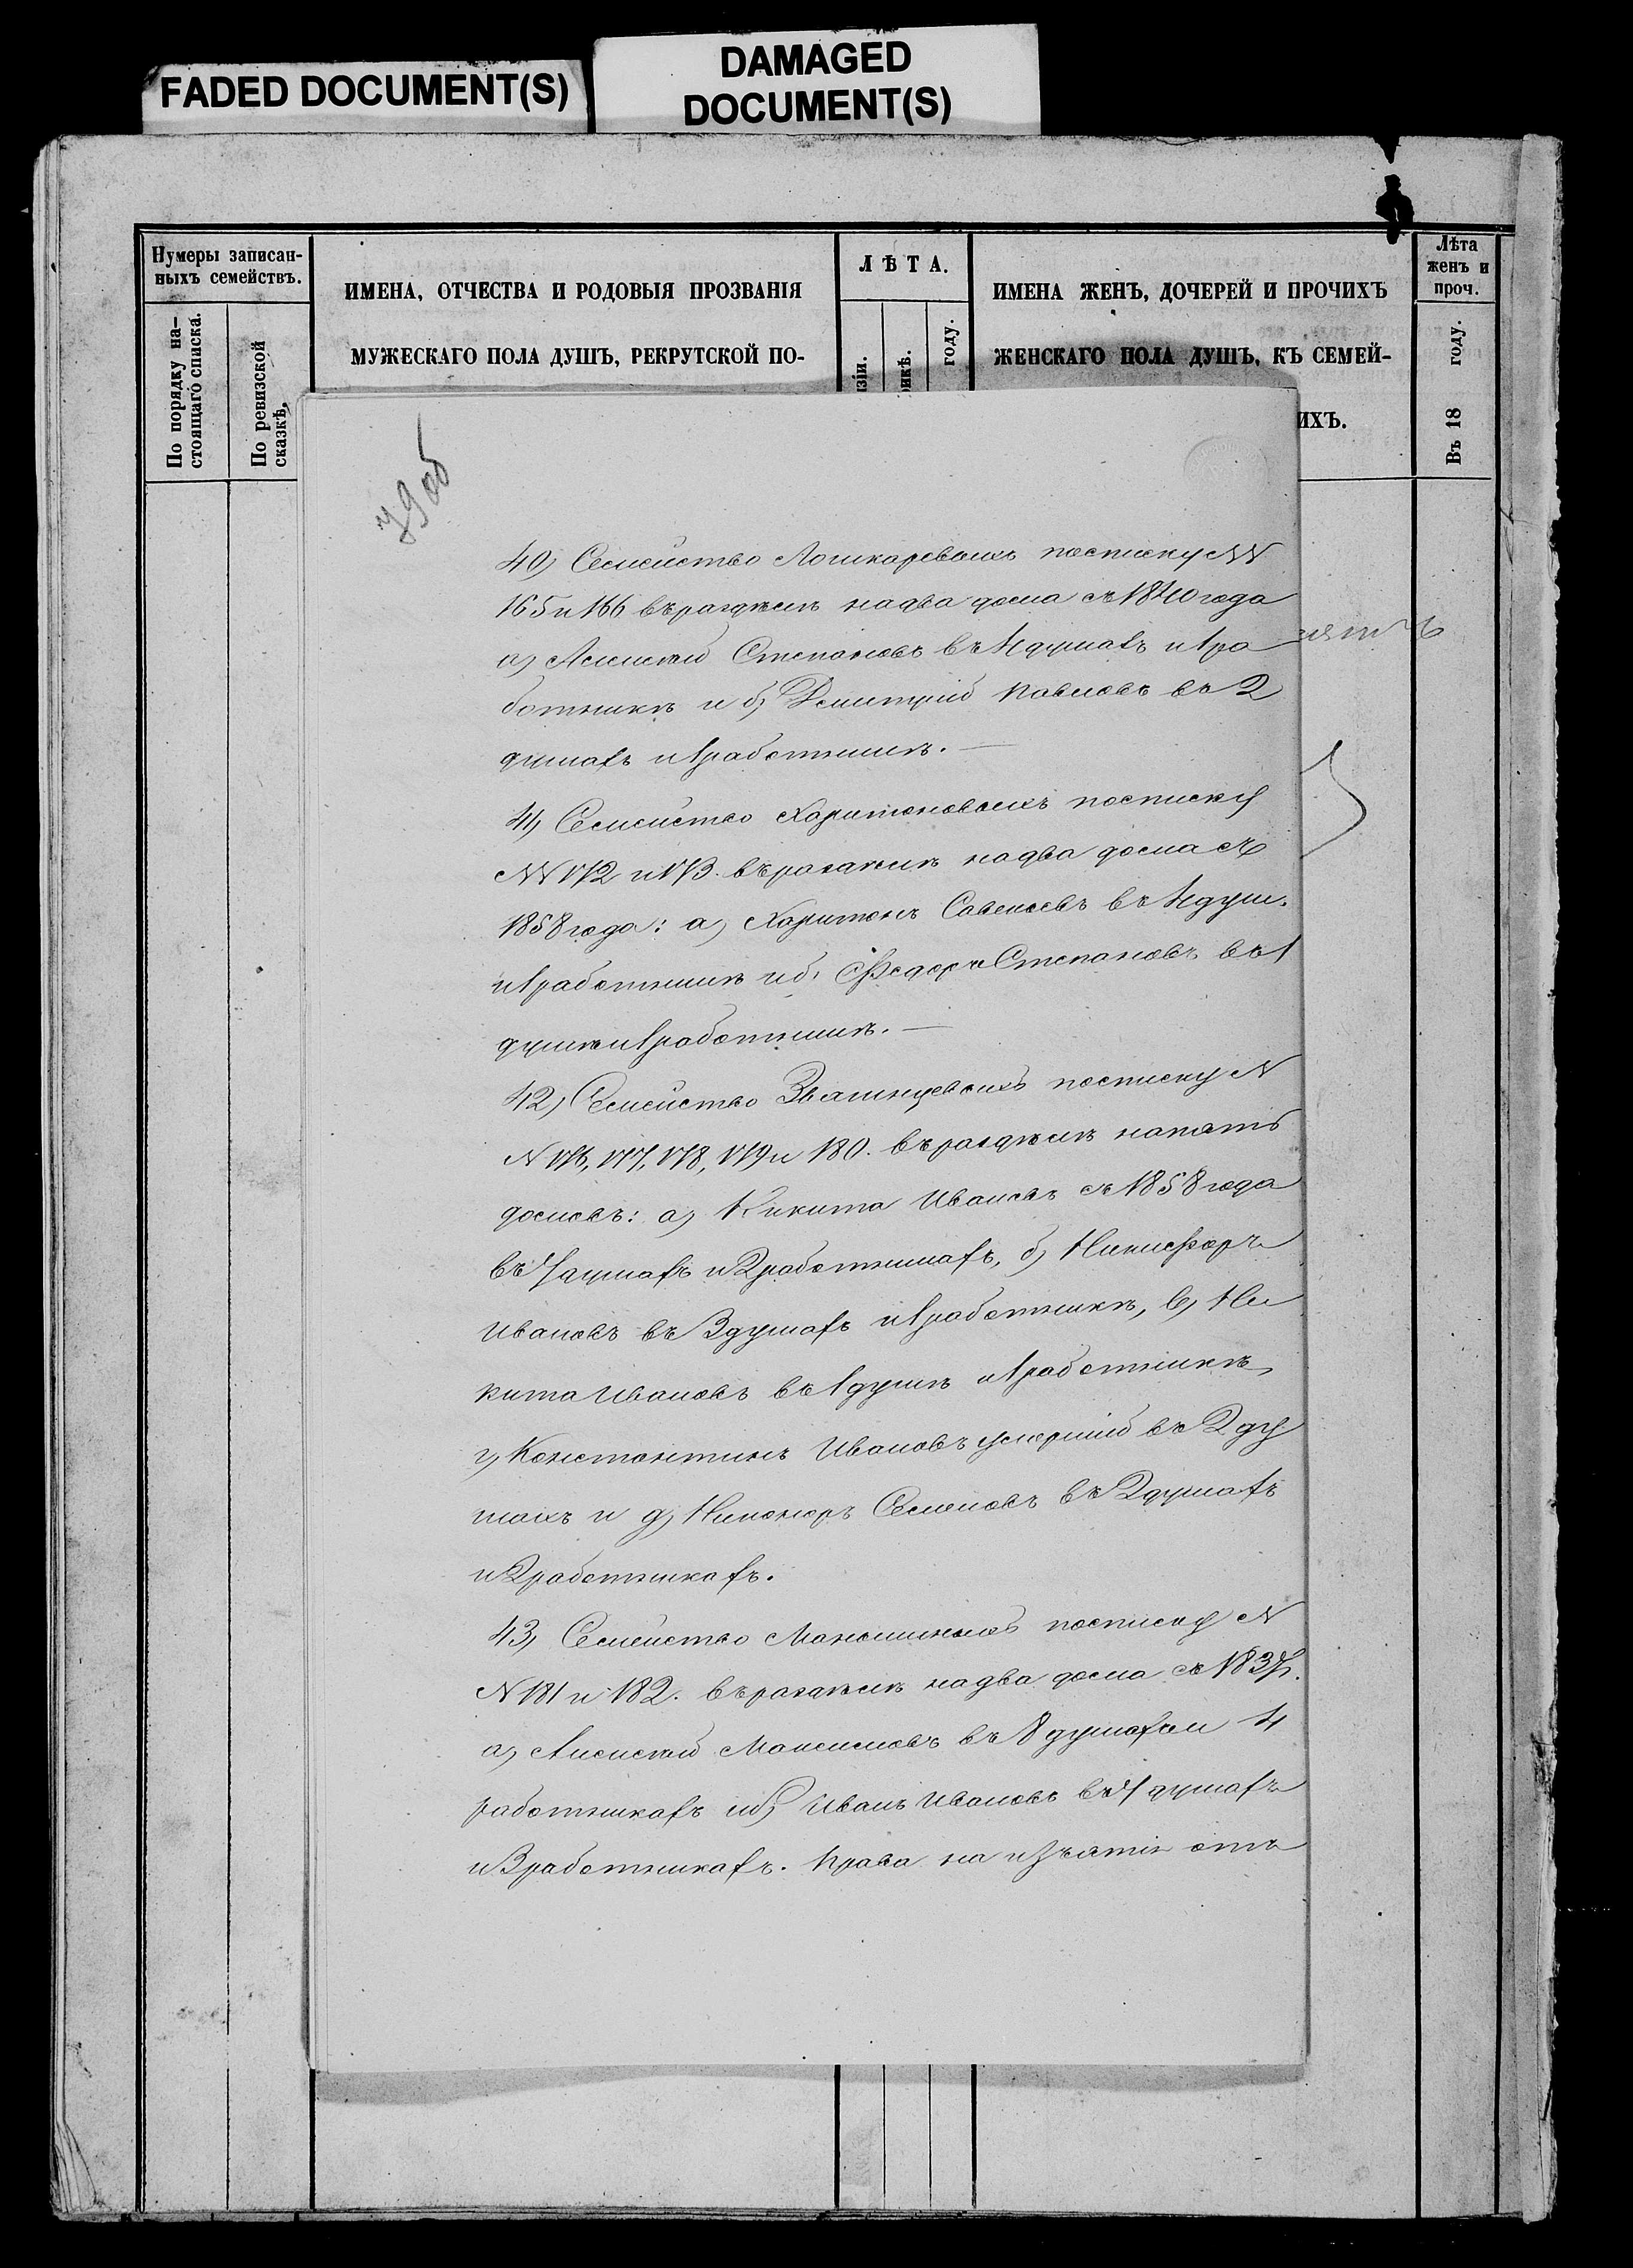 FADED DOCUMENT(S)
DAMAGED
DOCUMENT(S)
Нумеры записан-
ныхъ семействъ.
По порядку на-
стоящаго списка.
По ревизской
сказкѣ.
ИМЕНА, ОТЧЕСТВА И РОДОВЫЯ ПРОЗВАНІЯ
МУЖЕСКАГО ПОЛА ДУШЪ, РЕКРУТСКОЙ ПО-
ЛѢТА.
году.
ИМЕНА ЖЕНЪ, ДОЧЕРЕЙ И ПРОЧИХЪ
ЖЕНСКАГО ПОЛА ДУШЪ, КЪ СЕМЕЙ-
ИХЪ.
Лѣта
женъ и
проч.
Въ 18 году.
79 об
40) Семейство Лошкаревыхъ посписку NN
165 и 166 въ раздѣлѣ на два дома съ 1840 года
а) Алексѣй Степановъ въ 4 душахъ и 1 ра
ботникѣ и б) Дмитрій Павловъ въ 2
душахъ и 1 работникѣ. —
41) Семейство Харитоновыхъ посписку
NN 172 и 173. въ раздѣлѣ на два дома съ
1858 года: а) Харитонъ Савельевъ въ 4 душ.
и 1 работникѣ и б) Федоръ Степановъ въ 1
душѣ и 1 работникѣ. —
42) Семейство посписку N
N 176, 177, 178, 179 и 180. въ раздѣлѣ на пять
домовъ: а) Никита Ивановъ съ 1858 года
въ душахъ и 2 работникахъ, б) Никифоръ
Ивановъ въ 3 душахъ и 1 работникѣ, в) Ни
кита Ивановъ въ 1 душѣ и 1 работникѣ,
г) Константинъ Ивановъ умершій въ 2 ду
шахъ и д) Никоноръ Семеновъ въ 2 душахъ
и 2 работникахъ.
43) Семейство посписку N
N 181 и 182. въ раздѣлѣ на два дома съ 1837г.
а) Алексѣй Максимовъ въ 8 душахъ и 4
работникахъ и б) Иванъ Ивановъ въ душахъ
и 3 работникахъ. Права на изъятіе отъ